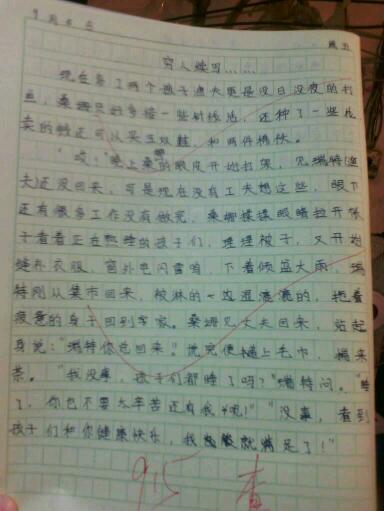 周五
穷人续写……
现在多了两个孩子渔夫更是没日没夜的打
鱼，桑娜只能多接一些针线活，还种了一些花
卖的钱还可以买双鞋，和两件棉袄。
"哎！"晚上桑娜的眼皮开始打架，见瑞特（渔
夫）还没回来，可是现在没有工夫想这些，眼下
还有很多工作没有做完，桑娜揉揉眼睛拉开帐
子看看正在熟睡的孩子们，理理被子，又开始
缝补衣服，窗外电闪雷鸣，下着倾盆大雨，瑞
特刚从集市回来，被淋的一边湿漉漉的，抱着
疲惫的身子回到家。桑姆见丈夫回来，站起
身说："瑞特你总回来。"说完便插上毛巾，端来
茶。"我没事，孩子们都睡了吗？"瑞特问。"睡
了，你也不要太辛苦还有我呢！""没事，看到
孩子们和你健康快乐，我就满足了！"
9.15 查